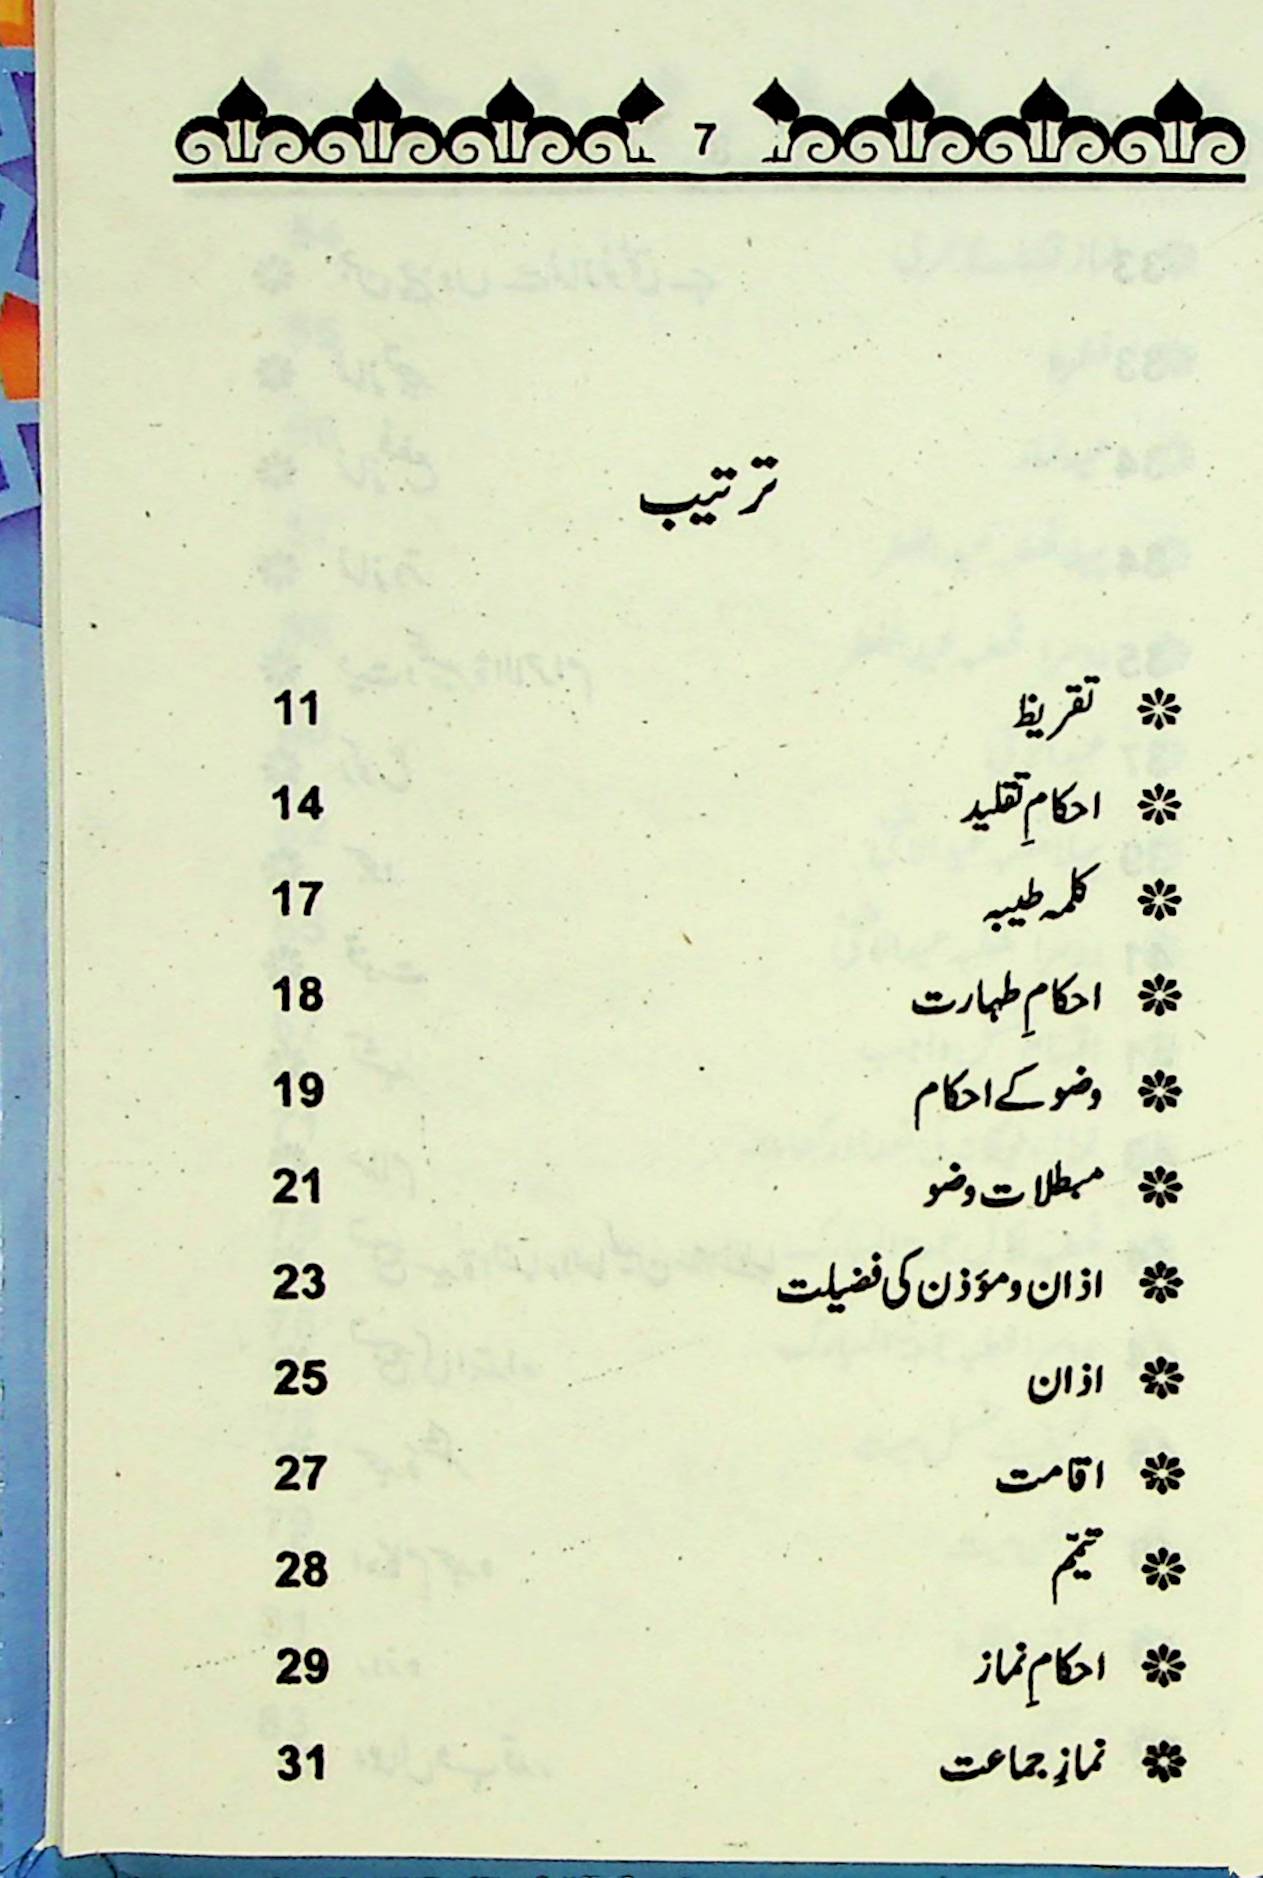 7
ترتیب
تقریظ 11
احکامِ تقلید 14
کلمہ طیبہ 17
احکامِ طہارت 18
وضو کے احکام 19
مبطلات وضو 21
اذان و مؤذن کی فضیلت 23
اذان 25
اقامت 27
تیمّم 28
احکامِ نماز 29
نمازِ جماعت 31